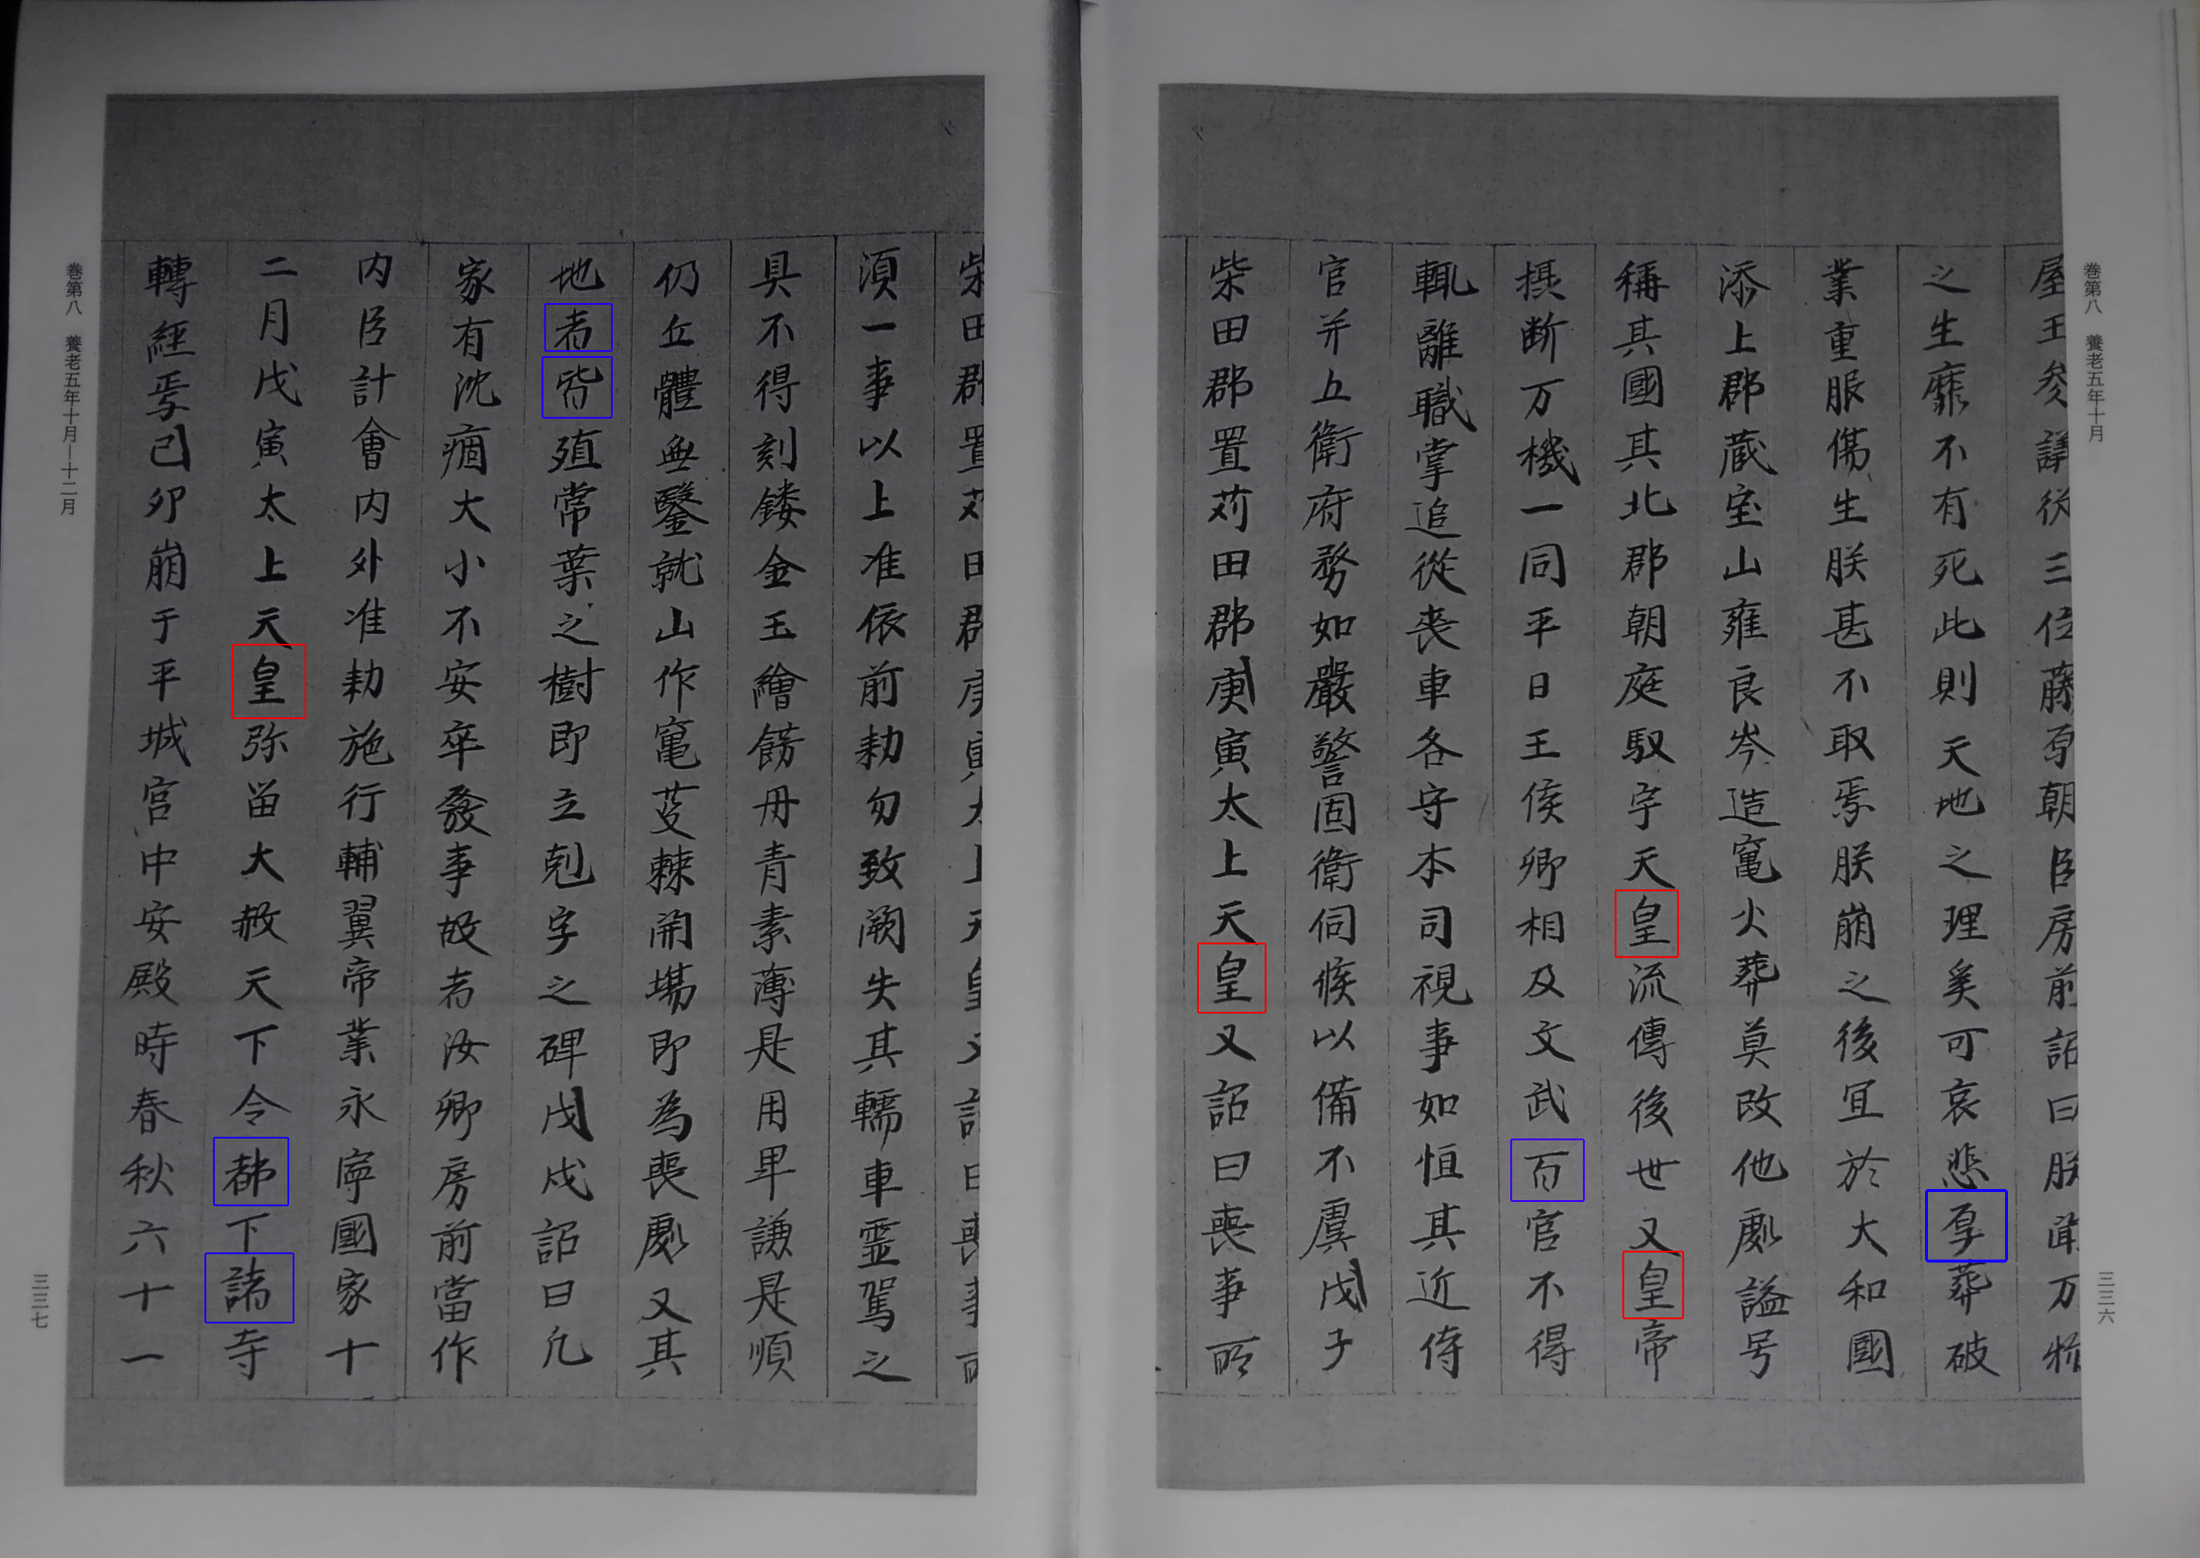 巻第八 養老五年十月
三三六
屋王参議従三位藤原朝臣房前詔曰朕聞万物
之生靡不有死此則天地之理奚可哀悲厚葬破
業重服傷生朕甚不取焉朕崩之後宜於大和國
添上郡蔵宝山雍良岑造竃火葬莫改他處謚号
稱其國其北郡朝庭馭宇天皇流傳後世又皇帝
摂断万機一同平日王侯卿相及文武百官不得
輙離職掌追從喪車各守本司視事如恒其近侍
官并五衛府務如嚴警固衛伺候以備不虞戊子
柴田郡置苅田郡庚寅太上天皇又詔曰喪事所
柴田郡置苅田郡庚寅太上天皇又詔曰喪事所
湏一事以上准依前勅勿致闕失其轜車霊駕之
具不得刻鏤金玉繪餝丹青素薄是用卑謙是順
仍丘體無鑿就山作竃芟棘開場即為喪處又其
地者皆殖常葉之樹即立剋字之碑戊戌詔曰凡
家有沈痼大小不安卒發事故者汝卿房前當作
内臣計會内外准勅施行輔翼帝業永寧國家十
二月戊寅太上天皇弥留大赦天下令都下諸寺
轉經焉己卯崩于平城宮中安殿時春秋六十一
巻第八 養老五年十月—十二月
三三七